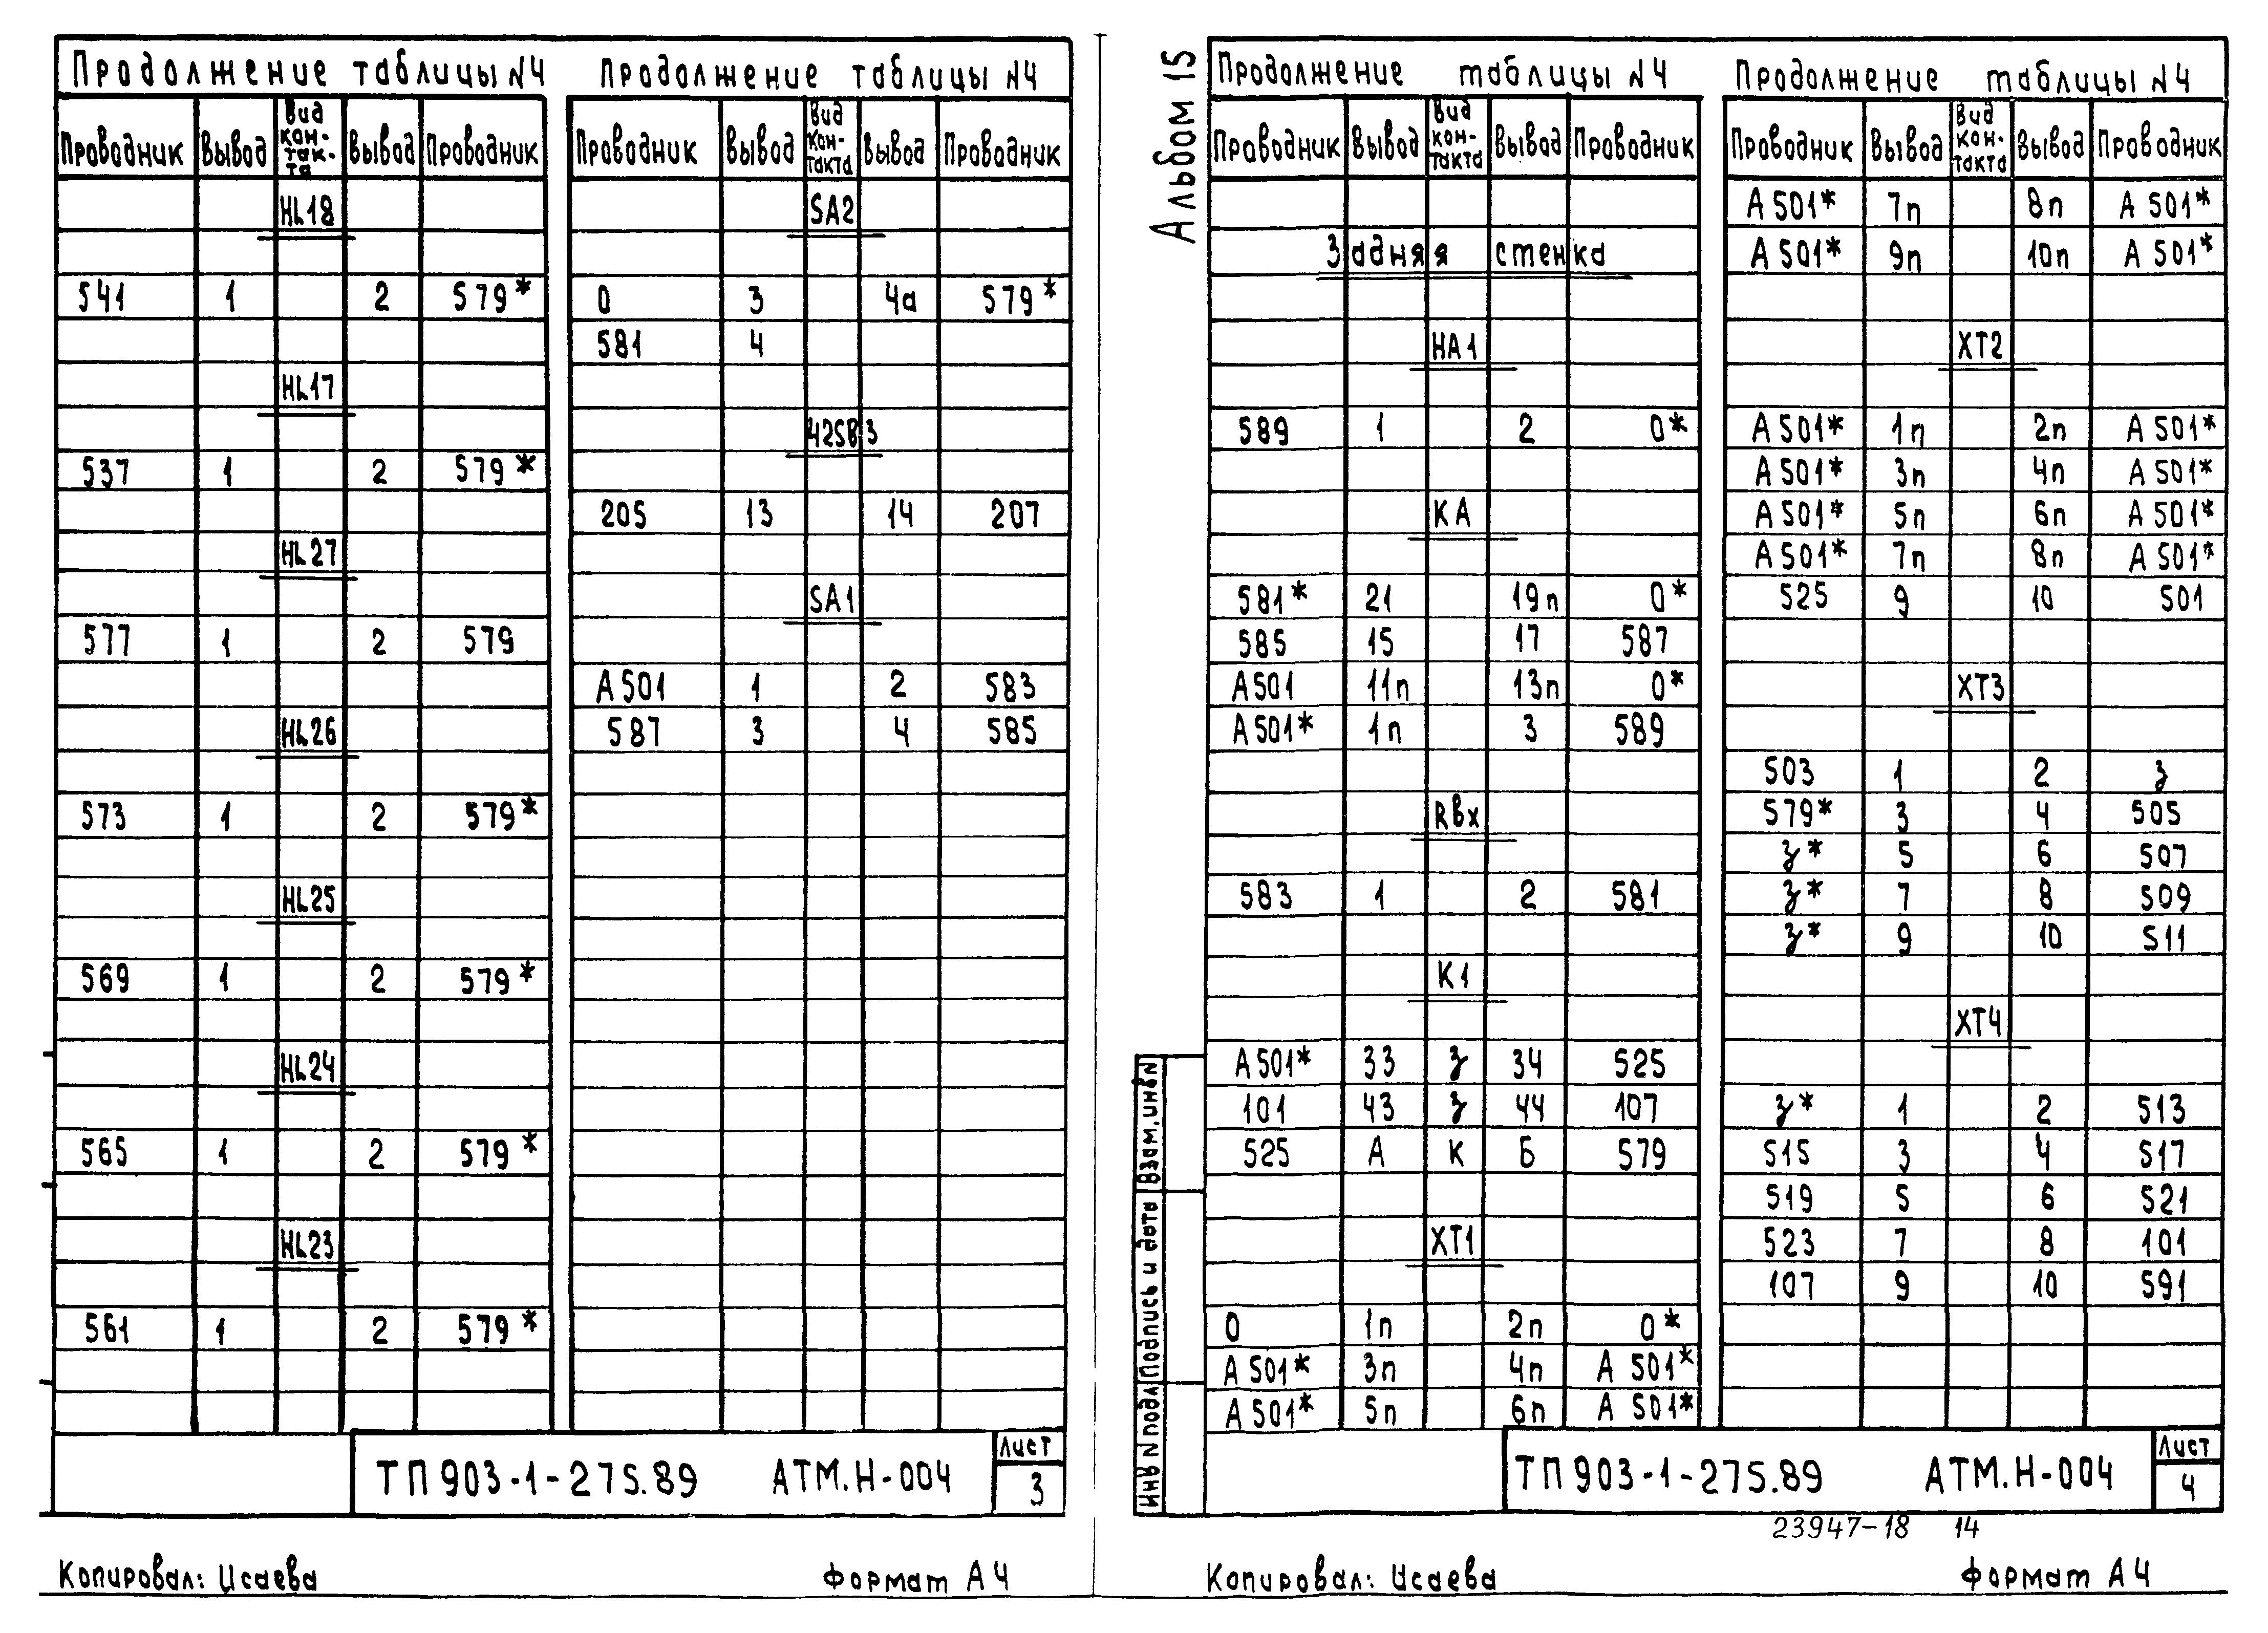 Продолжение таблицы N4
Проводник Вывод Вид кон-так-та Вывод Проводник
HL18
541 1 2 579*
HL17
537 1 2 579*
HL27
577 1 2 579
HL26
573 1 2 579*
HL25
569 1 2 579*
HL24
565 1 2 579*
HL23
561 1 2 579*
Продолжение таблицы N4
Проводник Вывод Вид кон-такта Вывод Проводник
SA2
0 3 4а 579*
581 4
42SB3
205 13 14 207
SA1
A501 1 2 583
587 3 4 585
ТП 903-1-275.89 АТМ.Н-004
Лист
3
Копировал: Исаева Формат А4
Альбом 15
Продолжение таблицы N4
Проводник Вывод Вид кон-такта Вывод Проводник
Задняя стенка
HA1
589 1 2 0*
КА
581* 21 19п 0*
585 15 17 587
А501 11п 13п 0*
А501* 1п 3 589
Rвх
583 1 2 581
К1
А501* 33 з 34 525
101 43 з 44 107
525 А К Б 579
XT1
0 1п 2п 0*
А501* 3п 4п А501*
А501* 5п 6п А501*
Продолжение таблицы N4
Проводник Вывод Вид кон-такта Вывод Проводник
А501* 7п 8п А501*
А501* 9п 10п А501*
XT2
А501* 1п 2п А501*
А501* 3п 4п А501*
А501* 5п 6п А501*
А501* 7п 8п А501*
525 9 10 501
XT3
503 1 2 з
579* 3 4 505
з* 5 6 507
з* 7 8 509
з* 9 10 511
XT4
з* 1 2 513
515 3 4 517
519 5 6 521
523 7 8 101
107 9 10 591
ИНВ N подл Подпись и дата Взам. инв N
ТП 903-1-275.89 АТМ.Н-004
Лист
4
23947-18 14
Копировал: Исаева Формат А4